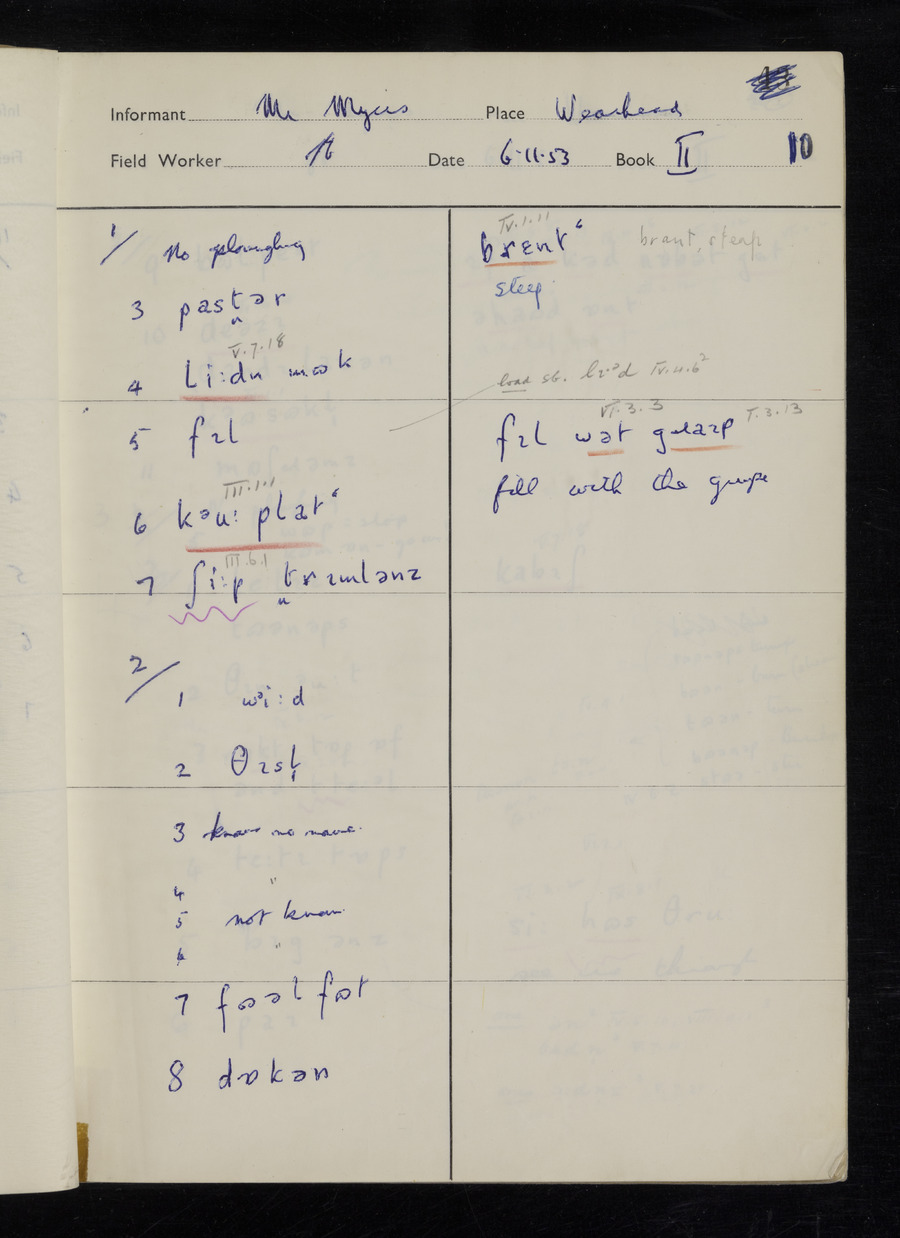 Informant Mr Myers Place Wearhead
Field Worker Date 6.11.53 Book II 10
1/ No ploughing
3 pastər
V.7.18
4 li:dn
5 fɪl
III.1.1
6 kəu: plat‘
III.6.1
7 ʃi:p trɛmlənz
2/
1 wi:d
2 θɪsl
3 know no name.
4 "
5 not know
6 "
7
8 dɒkən
IV.1.11
brɛnt‘ brant, steap
steep
load sb. IV.11.6²
VI.3.3 I.3.13
fɪl wət
fill with the gripe